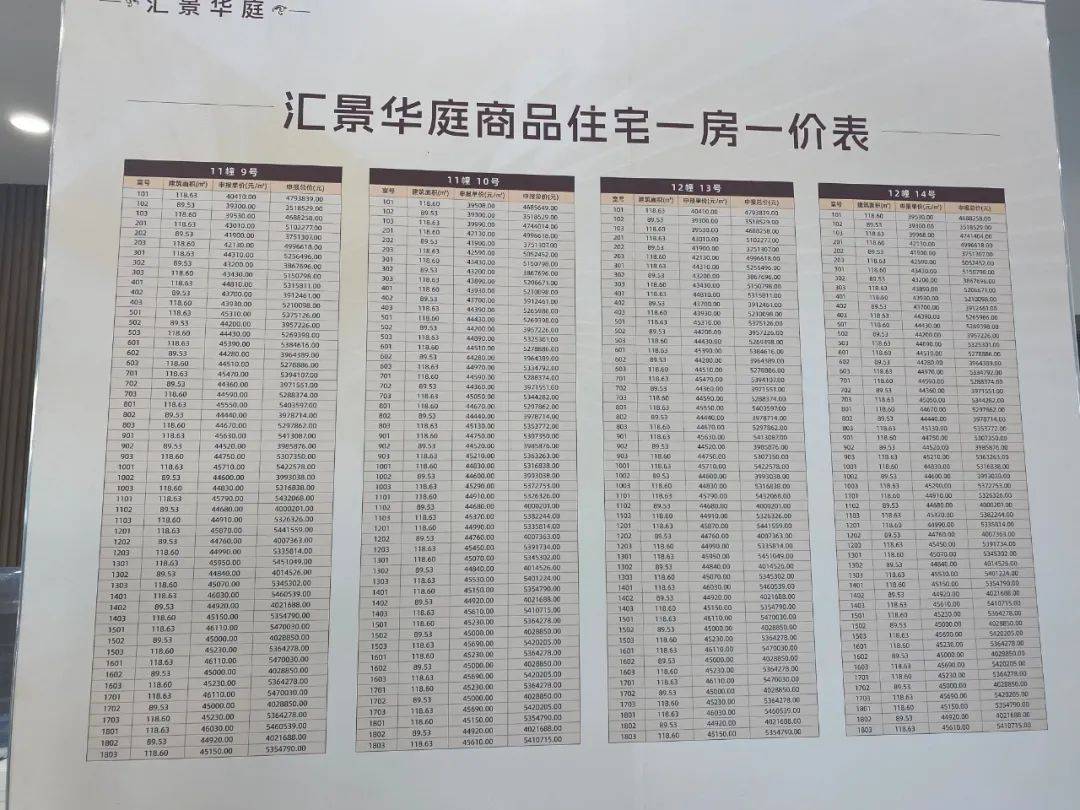 汇景华庭
汇景华庭商品住宅一房一价表
11幢 9号
室号 建筑面积(㎡) 申报单价(元/㎡) 申报总价(元)
101 118.63 40410.00 4793839.00
102 89.53 39300.00 3518529.00
103 118.60 39530.00 4688258.00
201 118.63 43010.00 5102277.00
202 89.53 41900.00 3751307.00
203 118.60 42130.00 4996618.00
301 118.63 44310.00 5256496.00
302 89.53 43200.00 3867696.00
303 118.60 43430.00 5150798.00
401 118.63 44810.00 5315811.00
402 89.53 43700.00 3912461.00
403 118.60 43930.00 5210098.00
501 118.63 45310.00 5375126.00
502 89.53 44200.00 3957226.00
503 118.60 44430.00 5269398.00
601 118.63 45390.00 5384616.00
602 89.53 44280.00 3964389.00
603 118.60 44510.00 5278886.00
701 118.63 45470.00 5394107.00
702 89.53 44360.00 3971551.00
703 118.60 44590.00 5288374.00
801 118.63 45550.00 5403597.00
802 89.53 44440.00 3978714.00
803 118.60 44670.00 5297862.00
901 118.63 45630.00 5413087.00
902 89.53 44520.00 3985876.00
903 118.60 44750.00 5307350.00
1001 118.63 45710.00 5422578.00
1002 89.53 44600.00 3993038.00
1003 118.60 44830.00 5316838.00
1101 118.63 45790.00 5432068.00
1102 89.53 44680.00 4000201.00
1103 118.60 44910.00 5326326.00
1201 118.63 45870.00 5441559.00
1202 89.53 44760.00 4007363.00
1203 118.60 44990.00 5335814.00
1301 118.63 45950.00 5451049.00
1302 89.53 44840.00 4014526.00
1303 118.60 45070.00 5345302.00
1401 118.63 46030.00 5460539.00
1402 89.53 44920.00 4021688.00
1403 118.60 45150.00 5354790.00
1501 118.63 46110.00 5470030.00
1502 89.53 45000.00 4028850.00
1503 118.60 45230.00 5364278.00
1601 118.63 46110.00 5470030.00
1602 89.53 45000.00 4028850.00
1603 118.60 45230.00 5364278.00
1701 118.63 46110.00 5470030.00
1702 89.53 45000.00 4028850.00
1703 118.60 45230.00 5364278.00
1801 118.63 46030.00 5460539.00
1802 89.53 44920.00 4021688.00
1803 118.60 45150.00 5354790.00
11幢 10号
室号 建筑面积(㎡) 申报单价(元/㎡) 申报总价(元)
101 118.60 39508.00 4685649.00
102 89.53 39300.00 3518529.00
103 118.63 39990.00 4744014.00
201 118.60 42130.00 4996618.00
202 89.53 41900.00 3751307.00
203 118.63 42590.00 5052452.00
301 118.60 43430.00 5150798.00
302 89.53 43200.00 3867696.00
303 118.63 43890.00 5206671.00
401 118.60 43930.00 5210098.00
402 89.53 43700.00 3912461.00
403 118.63 44390.00 5265986.00
501 118.60 44430.00 5269398.00
502 89.53 44200.00 3957226.00
503 118.63 44890.00 5325301.00
601 118.60 44510.00 5278886.00
602 89.53 44280.00 3964389.00
603 118.63 44970.00 5334792.00
701 118.60 44590.00 5288374.00
702 89.53 44360.00 3971551.00
703 118.63 45050.00 5344282.00
801 118.60 44670.00 5297862.00
802 89.53 44440.00 3978714.00
803 118.63 45130.00 5353772.00
901 118.60 44750.00 5307350.00
902 89.53 44520.00 3985876.00
903 118.63 45210.00 5363263.00
1001 118.60 44830.00 5316838.00
1002 89.53 44600.00 3993038.00
1003 118.63 45290.00 5372753.00
1101 118.60 44910.00 5326326.00
1102 89.53 44680.00 4000201.00
1103 118.63 45370.00 5382244.00
1201 118.60 44990.00 5335814.00
1202 89.53 44760.00 4007363.00
1203 118.63 45450.00 5391734.00
1301 118.60 45070.00 5345302.00
1302 89.53 44840.00 4014526.00
1303 118.63 45530.00 5401224.00
1401 118.60 45150.00 5354790.00
1402 89.53 44920.00 4021688.00
1403 118.63 45610.00 5410715.00
1501 118.60 45230.00 5364278.00
1502 89.53 45000.00 4028850.00
1503 118.63 45690.00 5420205.00
1601 118.60 45230.00 5364278.00
1602 89.53 45000.00 4028850.00
1603 118.63 45690.00 5420205.00
1701 118.60 45230.00 5364278.00
1702 89.53 45000.00 4028850.00
1703 118.63 45690.00 5420205.00
1801 118.60 45150.00 5354790.00
1802 89.53 44920.00 4021688.00
1803 118.63 45610.00 5410715.00
12幢 13号
室号 建筑面积(㎡) 申报单价(元/㎡) 申报总价(元)
101 118.63 40410.00 4793839.00
102 89.53 39300.00 3518529.00
103 118.60 39530.00 4688258.00
201 118.63 43010.00 5102277.00
202 89.53 41900.00 3751307.00
203 118.60 42130.00 4996618.00
301 118.63 44310.00 5256496.00
302 89.53 43200.00 3867696.00
303 118.60 43430.00 5150798.00
401 118.63 44810.00 5315811.00
402 89.53 43700.00 3912461.00
403 118.60 43930.00 5210098.00
501 118.63 45310.00 5375126.00
502 89.53 44200.00 3957226.00
503 118.60 44430.00 5269398.00
601 118.63 45390.00 5384616.00
602 89.53 44280.00 3964389.00
603 118.60 44510.00 5278886.00
701 118.63 45470.00 5394107.00
702 89.53 44360.00 3971551.00
703 118.60 44590.00 5288374.00
801 118.63 45550.00 5403597.00
802 89.53 44440.00 3978714.00
803 118.60 44670.00 5297862.00
901 118.63 45630.00 5413087.00
902 89.53 44520.00 3985876.00
903 118.60 44750.00 5307350.00
1001 118.63 45710.00 5422578.00
1002 89.53 44600.00 3993038.00
1003 118.60 44830.00 5316838.00
1101 118.63 45790.00 5432068.00
1102 89.53 44680.00 4000201.00
1103 118.60 44910.00 5326326.00
1201 118.63 45870.00 5441559.00
1202 89.53 44760.00 4007363.00
1203 118.60 44990.00 5335814.00
1301 118.63 45950.00 5451049.00
1302 89.53 44840.00 4014526.00
1303 118.60 45070.00 5345302.00
1401 118.63 46030.00 5460539.00
1402 89.53 44920.00 4021688.00
1403 118.60 45150.00 5354790.00
1501 118.63 46110.00 5470030.00
1502 89.53 45000.00 4028850.00
1503 118.60 45230.00 5364278.00
1601 118.63 46110.00 5470030.00
1602 89.53 45000.00 4028850.00
1603 118.60 45230.00 5364278.00
1701 118.63 46110.00 5470030.00
1702 89.53 45000.00 4028850.00
1703 118.60 45230.00 5364278.00
1801 118.63 46030.00 5460539.00
1802 89.53 44920.00 4021688.00
1803 118.60 45150.00 5354790.00
12幢 14号
室号 建筑面积(㎡) 申报单价(元/㎡) 申报总价(元)
101 118.60 39530.00 4688258.00
102 89.53 39300.00 3518529.00
103 118.63 39968.00 4741404.00
201 118.60 42130.00 4996618.00
202 89.53 41900.00 3751307.00
203 118.63 42590.00 5052452.00
301 118.60 43430.00 5150798.00
302 89.53 43200.00 3867696.00
303 118.63 43890.00 5206671.00
401 118.60 43930.00 5210098.00
402 89.53 43700.00 3912461.00
403 118.63 44390.00 5265986.00
501 118.60 44430.00 5269398.00
502 89.53 44200.00 3957226.00
503 118.63 44890.00 5325301.00
601 118.60 44510.00 5278886.00
602 89.53 44280.00 3964389.00
603 118.63 44970.00 5334792.00
701 118.60 44590.00 5288374.00
702 89.53 44360.00 3971551.00
703 118.63 45050.00 5344282.00
801 118.60 44670.00 5297862.00
802 89.53 44440.00 3978714.00
803 118.63 45130.00 5353772.00
901 118.60 44750.00 5307350.00
902 89.53 44520.00 3985876.00
903 118.63 45210.00 5363263.00
1001 118.60 44830.00 5316838.00
1002 89.53 44600.00 3993038.00
1003 118.63 45290.00 5372753.00
1101 118.60 44910.00 5326326.00
1102 89.53 44680.00 4000201.00
1103 118.63 45370.00 5382244.00
1201 118.60 44990.00 5335814.00
1202 89.53 44760.00 4007363.00
1203 118.63 45450.00 5391734.00
1301 118.60 45070.00 5345302.00
1302 89.53 44840.00 4014526.00
1303 118.63 45530.00 5401224.00
1401 118.60 45150.00 5354790.00
1402 89.53 44920.00 4021688.00
1403 118.63 45610.00 5410715.00
1501 118.60 45230.00 5364278.00
1502 89.53 45000.00 4028850.00
1503 118.63 45690.00 5420205.00
1601 118.60 45230.00 5364278.00
1602 89.53 45000.00 4028850.00
1603 118.63 45690.00 5420205.00
1701 118.60 45230.00 5364278.00
1702 89.53 45000.00 4028850.00
1703 118.63 45690.00 5420205.00
1801 118.60 45150.00 5354790.00
1802 89.53 44920.00 4021688.00
1803 118.63 45610.00 5410715.00